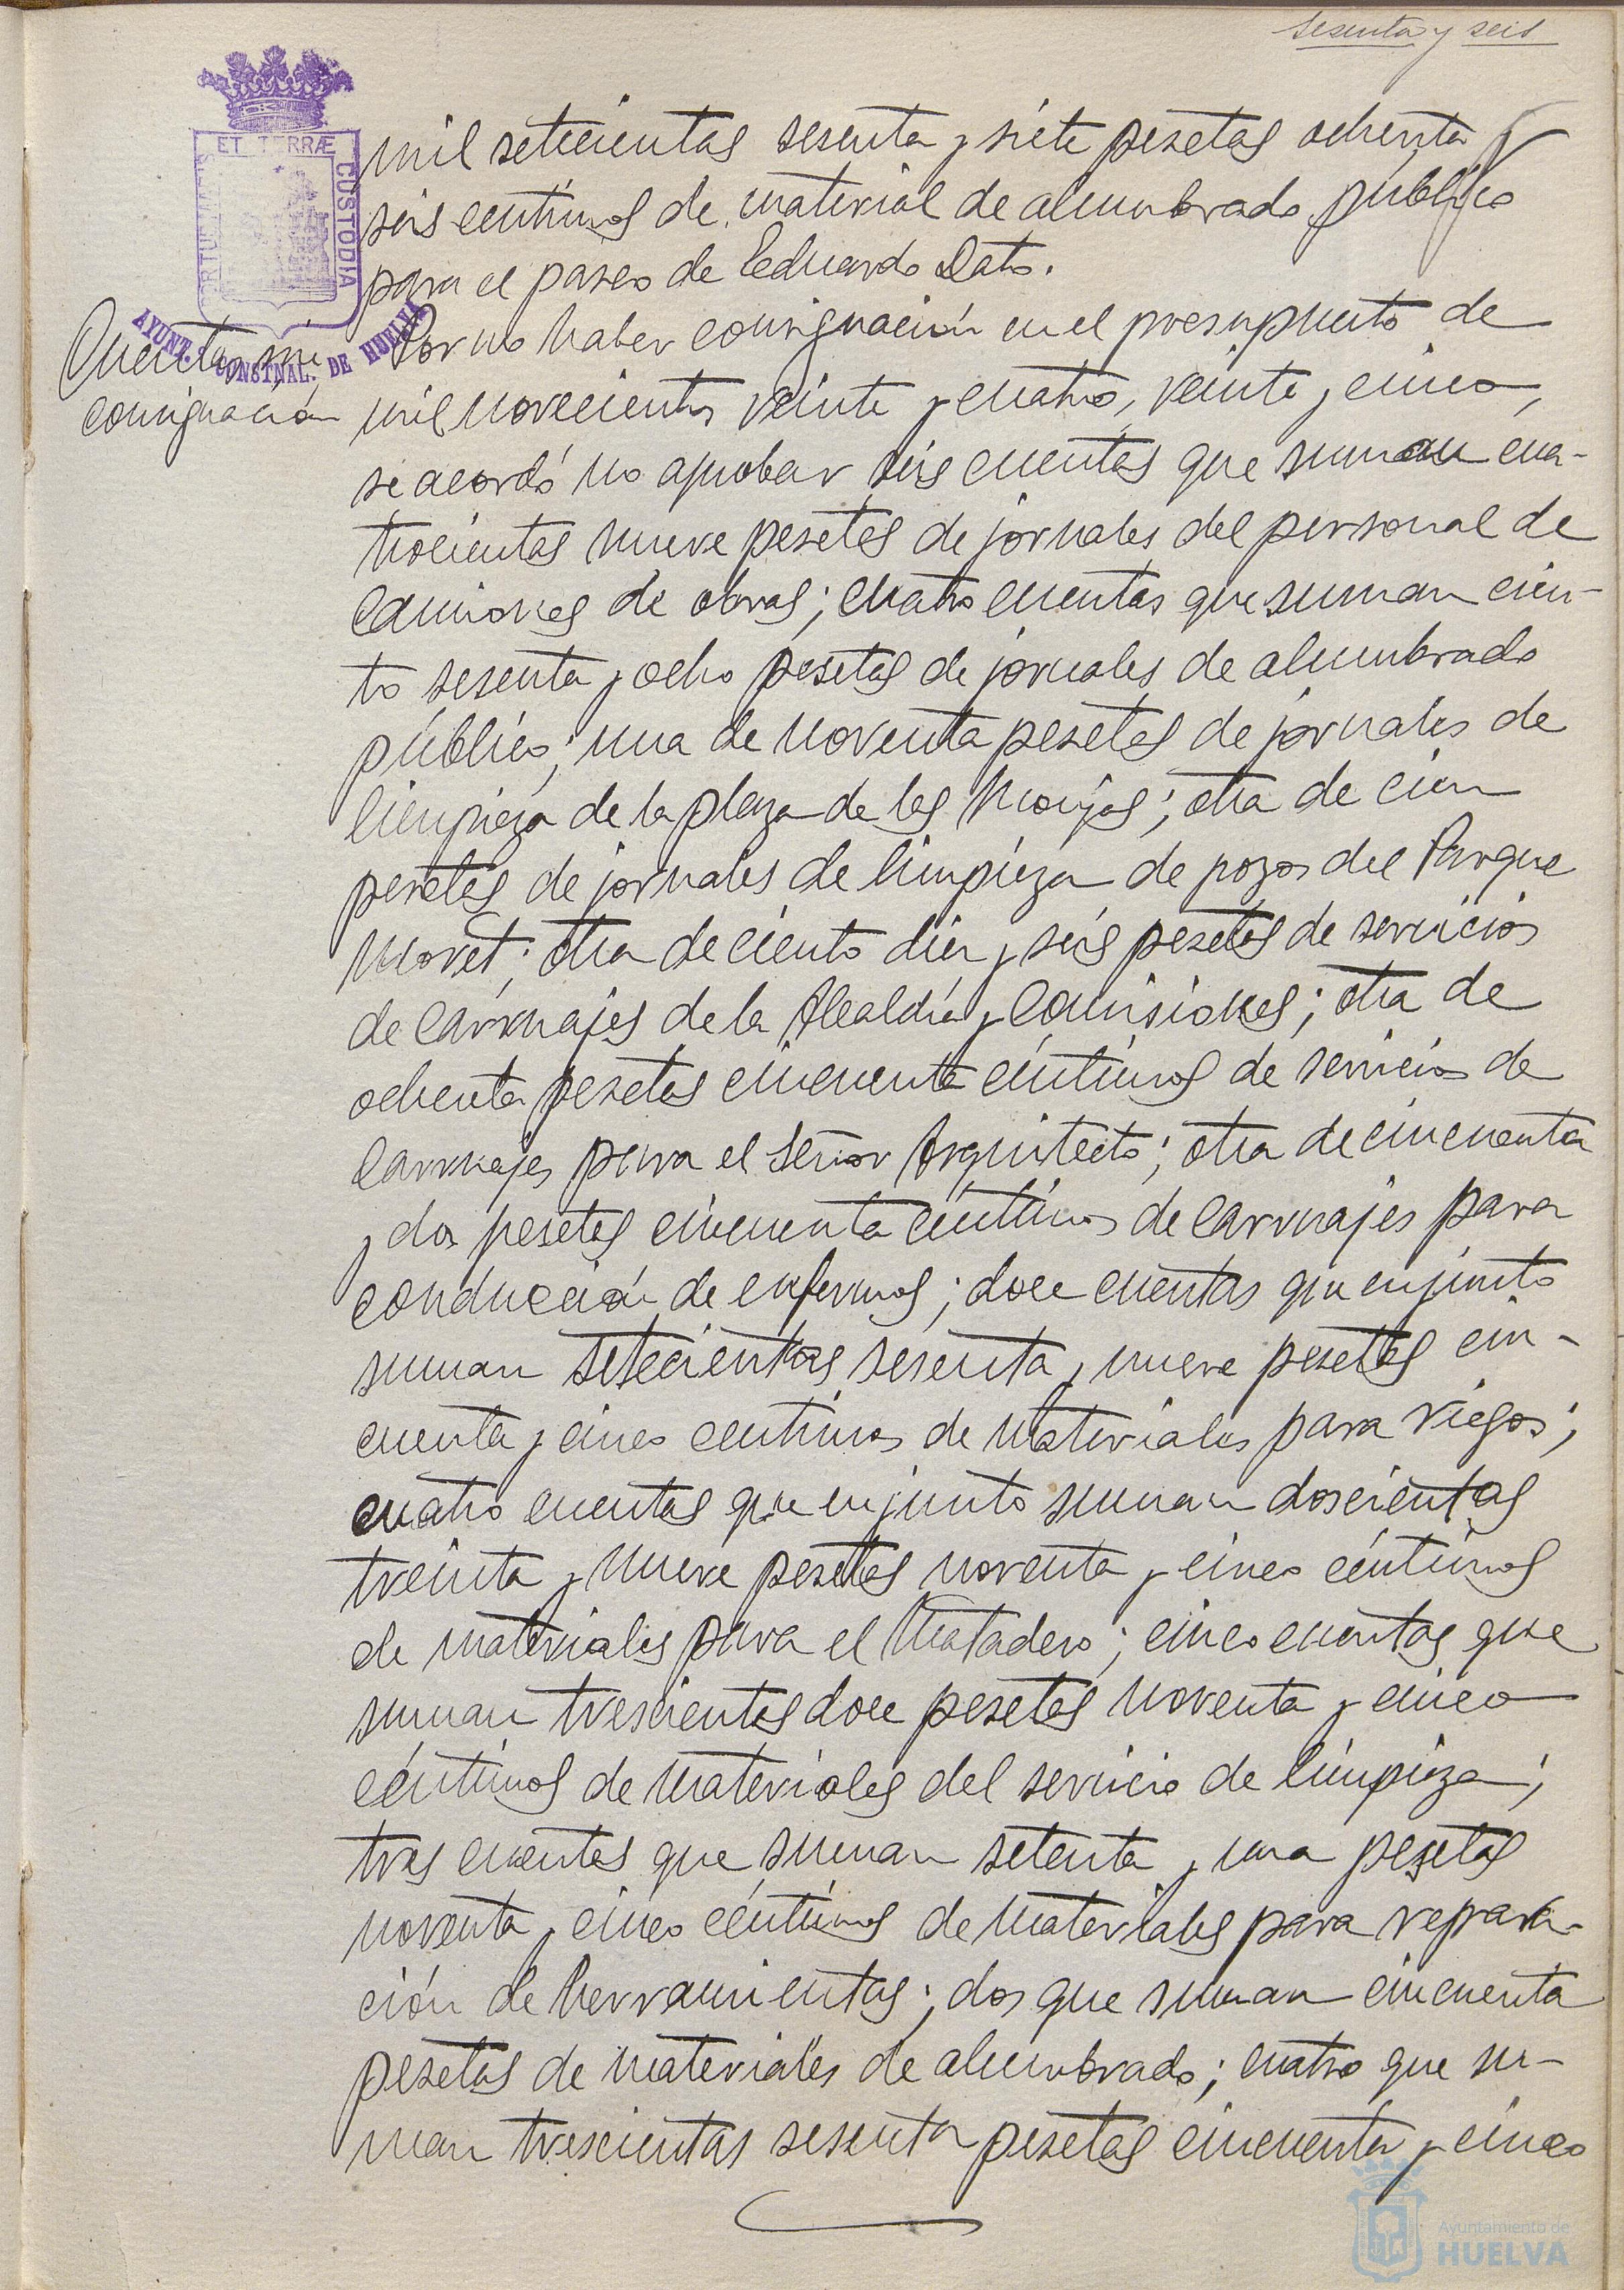 sesenta y seis
mil setecientas sesenta y siete pesetas ochenta y
seis centimos de material de alumbrado público
para el paseo de Eduardo Dato.
Cuentas sin
consignación
Por no haber consignación en el presupuesto de
mil novecientos veinte y cuatro, veinte y cinco,
se acordó no aprobar seis cuentas que suman cua-
trocientas nueve pesetas de jornales del personal de
camiones de obras; cuatro cuentas que suman cien-
to sesenta y ocho pesetas de jornales de alumbrado
público; una de noventa pesetas de jornales de
limpieza de la plaza de las Monjas; otra de cien
pesetas de jornales de limpieza de pozos del Parque
Moret; otra de ciento diez y seis pesetas de servicios
de carruajes de la Alcaldía y Comisiones; otra de
ochenta pesetas cincuenta céntimos de servicios de
carruajes para el Señor Arquitecto; otra de cincuenta
y dos pesetas cincuenta céntimos de carruajes para
conducción de enfermos; doce cuentas que en junto
suman setecientas sesenta y nueve pesetas cin-
cuenta y cinco centimos de materiales para riegos;
cuatro cuentas que en junto suman doscientas
treinta y nueve pesetas noventa y cinco céntimos
de materiales para el Matadero; cinco cuentas que
suman trescientas doce pesetas noventa y cinco
céntimos de materiales del servicio de limpieza;
tres cuentas que suman setenta y una pesetas
noventa y cinco céntimos de materiales para repara-
ción de herramientas; dos que suman cincuenta
pesetas de materiales de alumbrado; cuatro que su-
man trescientas sesenta pesetas cincuenta y cinco
ET TERRÆ CUSTODIA
AYUNT. CONSTNAL. DE HUELVA
Ayuntamiento de
HUELVA